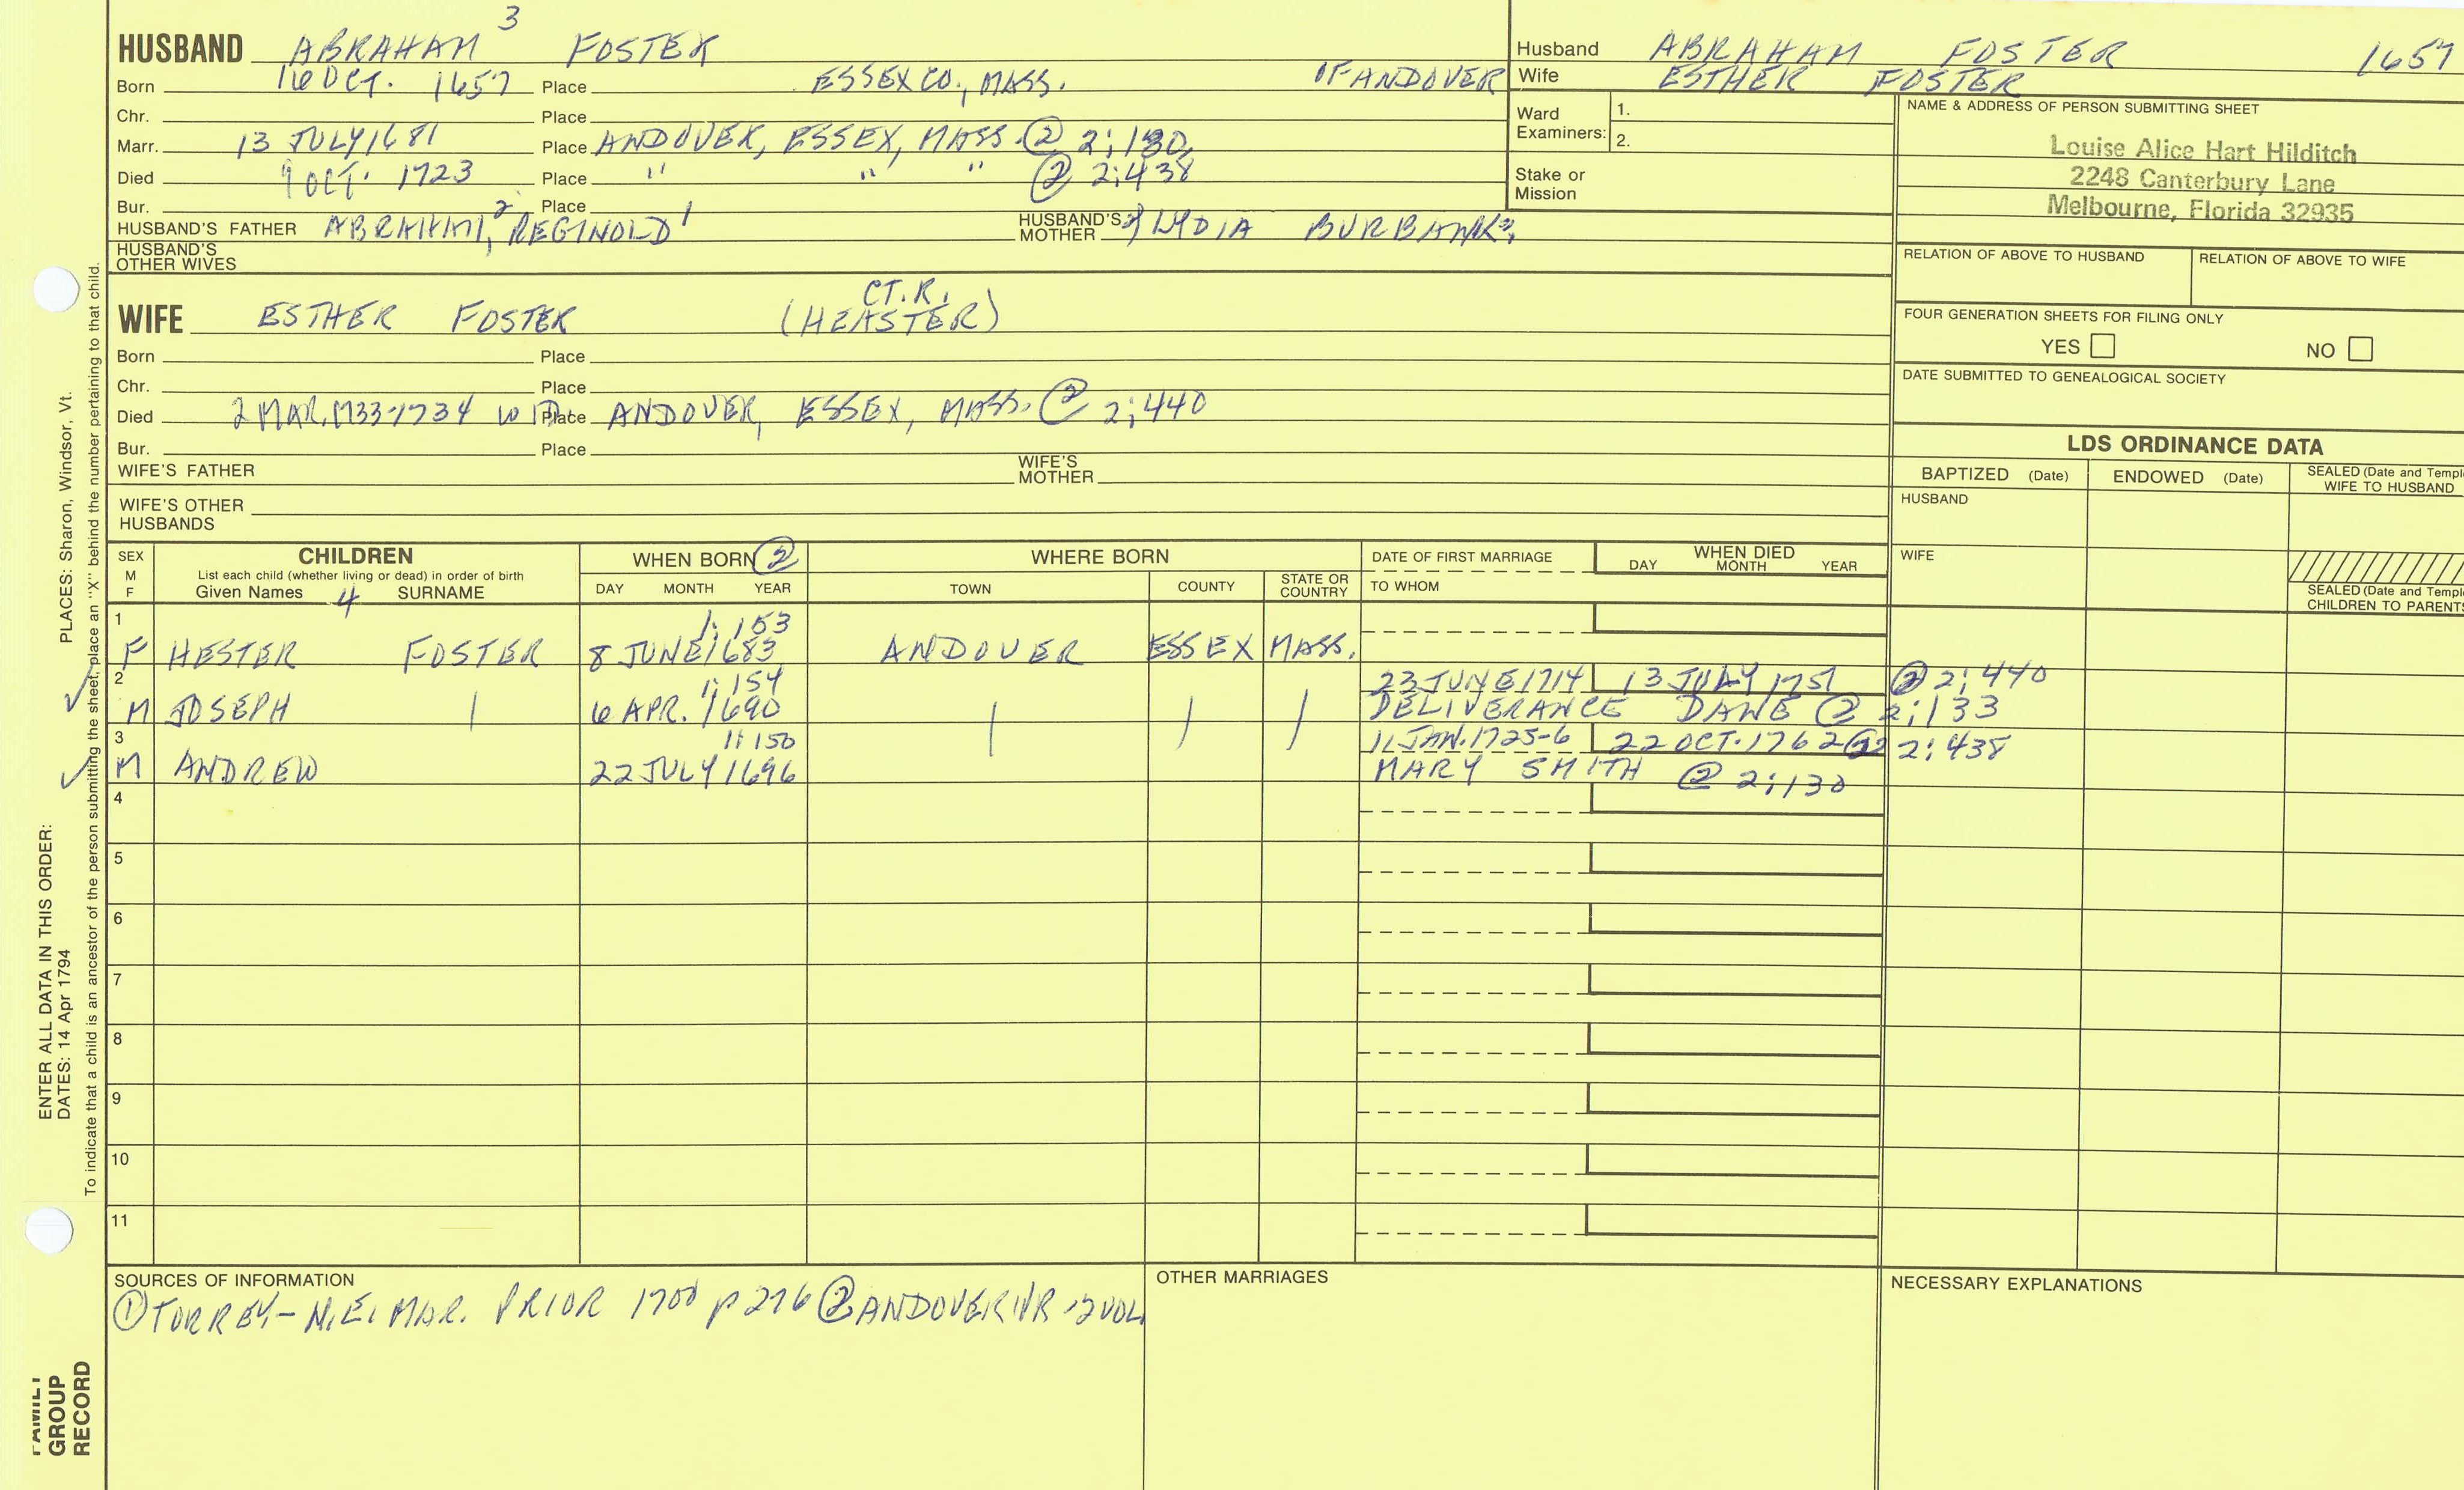 3
HUSBAND ABRAHAM FOSTER
Born 16 OCT. 1657 Place ESSEX CO., MASS. OF ANDOVER
Chr. Place
Marr. 13 JULY 1681 Place ANDOVER, ESSEX, MASS. @ 2;130,
Died 9 OCT. 1723 Place " " " @ 2;438
Bur. Place
HUSBAND'S FATHER ABRAHAM,2 REGINOLD1 HUSBAND'S MOTHER LYDIA BURBANK
HUSBAND'S OTHER WIVES
Husband ABRAHAM FOSTER 1657
Wife ESTHER FOSTER
Ward Examiners: 1.
2.
Stake or Mission
NAME & ADDRESS OF PERSON SUBMITTING SHEET
Louise Alice Hart Hilditch
2248 Canterbury Lane
Melbourne, Florida 32935
RELATION OF ABOVE TO HUSBAND RELATION OF ABOVE TO WIFE
FOUR GENERATION SHEETS FOR FILING ONLY
YES NO
DATE SUBMITTED TO GENEALOGICAL SOCIETY
CT.R.
WIFE ESTHER FOSTER (HEASTER)
Born Place
Chr. Place
Died 2 MAR. 1733-1734 WID. Place ANDOVER, ESSEX, MASS. @ 2;440
Bur. Place
WIFE'S FATHER WIFE'S MOTHER
WIFE'S OTHER HUSBANDS
LDS ORDINANCE DATA
BAPTIZED (Date) ENDOWED (Date) SEALED (Date and Templ
WIFE TO HUSBAND
HUSBAND
WIFE
SEALED (Date and Templ
CHILDREN TO PARENTS
SEX M F CHILDREN WHEN BORN ② WHERE BORN DATE OF FIRST MARRIAGE WHEN DIED
List each child (whether living or dead) in order of birth
Given Names 4 SURNAME DAY MONTH YEAR TOWN COUNTY STATE OR COUNTRY TO WHOM DAY MONTH YEAR
1 1;153
F HESTER FOSTER 8 JUNE 1683 ANDOVER ESSEX MASS.
2 1;154 23 JUNE 1714 13 JULY 1751 @ 2;440
M JOSEPH 6 APR. 1690 DELIVERANCE DANE @ 2;133
3 1;150 11 JAN. 1725-6 22 OCT. 1762 2;438
M ANDREW 22 JULY 1696 MARY SMITH @ 2;130
4
5
6
7
8
9
10
11
SOURCES OF INFORMATION OTHER MARRIAGES NECESSARY EXPLANATIONS
① TORREY - N.E. MAR. PRIOR 1700 p 276 ② ANDOVER VR - 2 VOL
PLACES: Sharon, Windsor, Vt.
To indicate that a child is an ancestor of the person submitting the sheet, place an "X" behind the number pertaining to that child.
ENTER ALL DATA IN THIS ORDER:
DATES: 14 Apr 1794
FAMILY
GROUP
RECORD